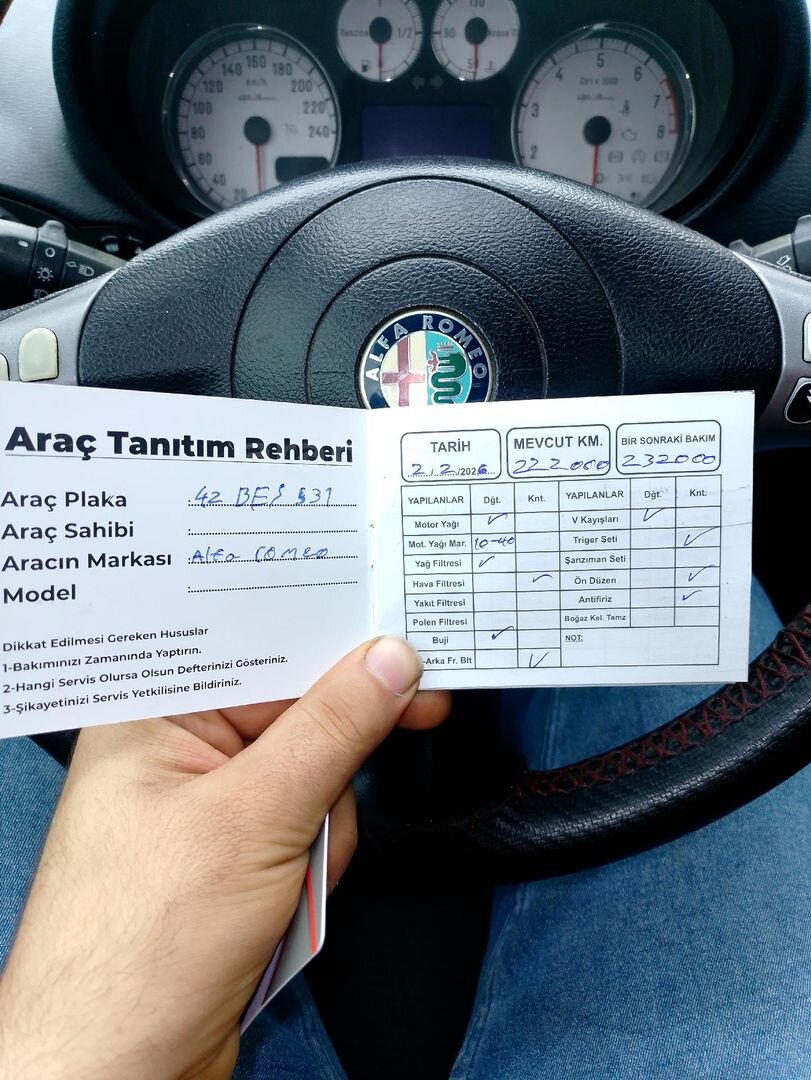 Benzina 1/2
1
130
90 Acqua°C
50
140 160 180
120 km/h 200
100 220
80 240
60
40
20
4 5 6
3 Giri x 1000 7
2 8
ALFA ROMEO
Araç Tanıtım Rehberi
Araç Plaka 42 BEJ 531
Araç Sahibi
Aracın Markası Alfa romeo
Model
Dikkat Edilmesi Gereken Hususlar
1-Bakımınızı Zamanında Yaptırın.
2-Hangi Servis Olursa Olsun Defterinizi Gösteriniz.
3-Şikayetinizi Servis Yetkilisine Bildiriniz.
TARİH MEVCUT KM. BİR SONRAKİ BAKIM
2/2/2026 222000 232000
YAPILANLAR Dğt. Knt. YAPILANLAR Dğt. Knt.
Motor Yağı ✓ V Kayışları ✓
Mot. Yağı Mar. 10-40 Triger Seti ✓
Yağ Filtresi ✓ Şanzıman Seti
Hava Filtresi ✓ Ön Düzen ✓
Yakıt Filtresi Antifiriz ✓
Polen Filtresi Boğaz Kel. Temz
Buji ✓ NOT:
-Arka Fr. Blt ✓